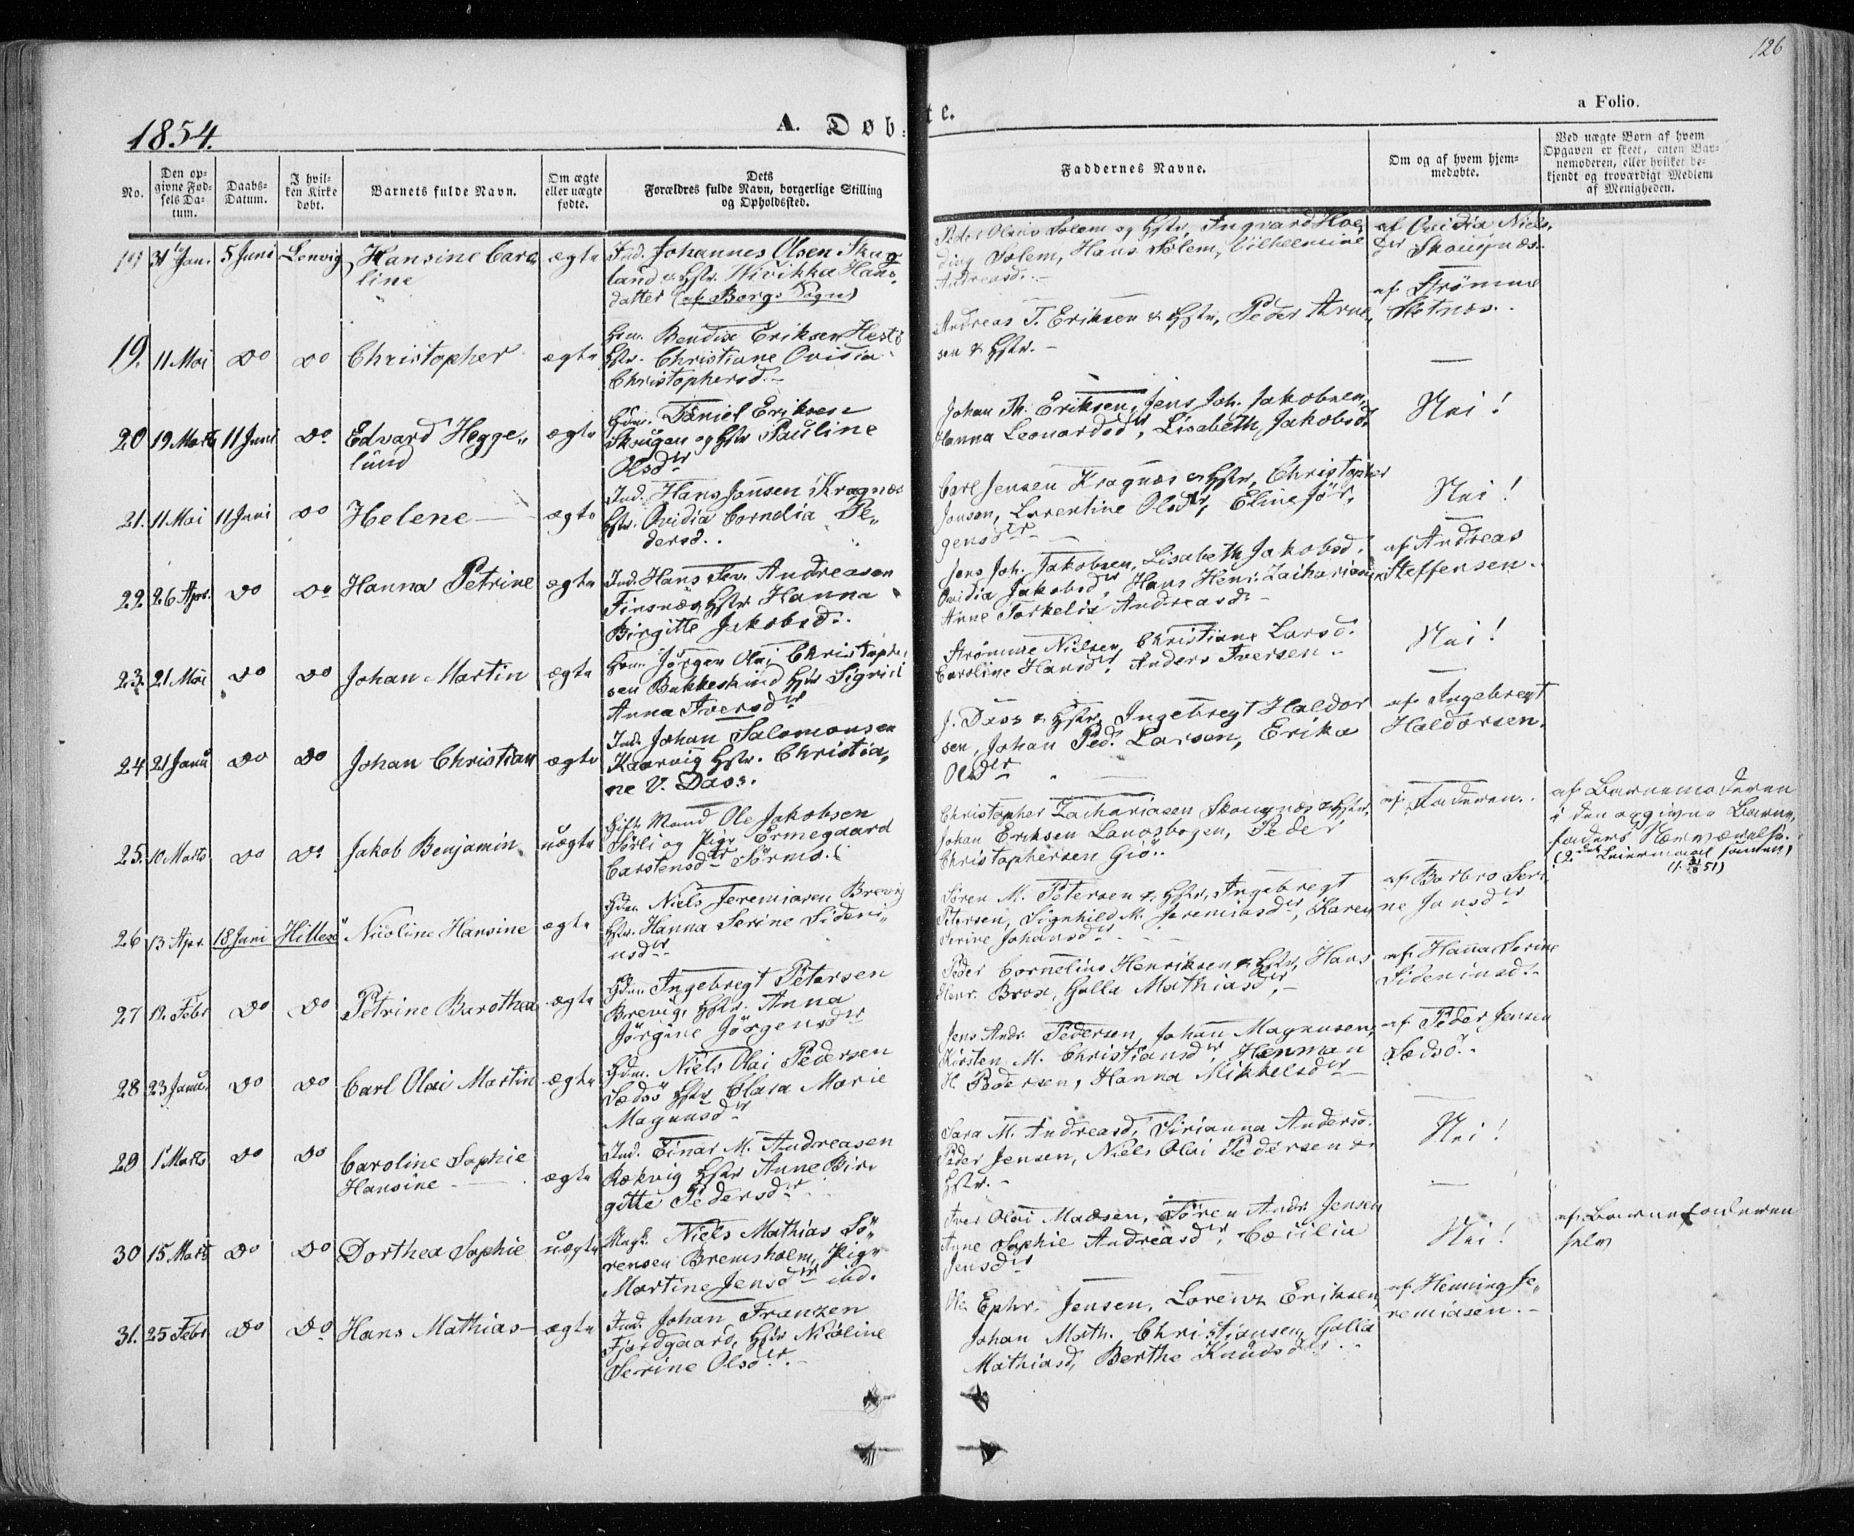 126
a Folio.
1854.
A. Døbte.
No.
Den opgivne Fødsels Datum.
Daabs-Datum.
I hvilken Kirke døbt.
Barnets fulde Navn.
Om ægte eller uægte fødte.
Dets
Forældres fulde Navn, borgerlige Stilling
og Opholdssted.
Faddernes Navne.
Om og af hvem hjem-
medøbte.
Ved uægte Børn af hvem
Opgaven er skeet, enten Bar-
nemoderen, eller hvilket be-
kjendt og troværdigt Medlem
af Menigheden.
31 Jan. 5 Juni Lenvig Hansine Caro-
line
ægte
Ind. Johannes Olsen Skog-
land & Hstr. Wivikka Hans-
datter (af Borge Sogn)
Peder Olaus Solem og Hstr, Ingvard Hve
ding Solem, Hans Solem, Vilhelmine
Andreasd.
af Ovidia Niels-
dr Skougnæs.
19. 11 Mai Do Do Christopher ægte
Hsm. Bendix Eriksen Hestø
Hstr. Christiane Ovidia
Christophersd.
Andreas T. Eriksen & Hstr, Peder Arne
sen & Hstr.
af Strømme
Sletnes.
20 19 Marts 11 Juni Do Edvard Hegge-
lund
ægte
Gdm. Daniel Eriksen
Skougen og Hstr Pauline
Olsdr
Johan Th. Eriksen, Jens Joh. Jakobsen,
Hanna Leonardsdr, Lisabeth Jakobsd
Nei!
21. 11 Mai 11 Juni Do Helene ægte
Ind. Hans Jonsen Kragnæs
Hstr. Ovidia Cornelia Pe-
dersd.
Carl Jensen Kragnæs & Hstr, Christopher
Jonsen, Laurentine Olsdr, Eline Jør-
gensdr
Nei!
22. 26 Apr. Do Do Hanna Petrine ægte
Ind. Hans Sev. Andreasen
Finsnæs Hstr Hanna
Birgitte Jakobsd.
Jens Joh. Jakobsen, Lisabeth Jakobsd,
Ovidia Jakobsdr, Hans Henr. Zachariasen
Anne Torkelia Andreasd.
af Andreas
Steffensen.
23. 21 Mai Do Do Johan Martin ægte
Hsm. Jørgen Olai Christoph-
sen Bukkeskind Hstr Sigrid
Anna Iversdr
Strømme Nielsen, Christiane Larsd.
Caroline Hansdr, Anders Iversen.
Nei!
24 21 Janu Do Do Johan Christian ægte
Ind. Johan Salomonsen
Kaarvig Hstr. Christia-
ne V. Dass.
J. Dass & Hstr, Ingebregt Haldor
sen, Johan Ped. Larsen, Erika
Olsdr
af Ingebregt
Haldorsen.
25. Marts Do Do Jakob Benjamin uægte
Gift Mand Ole Jakobsen
Sørli og Pige Ermegaard
Carstensdr
Christopher Zachariasen Skougnæs & Hstr,
Johan Eriksen Langsbogen, Peder
Christophersen Giø.
af Faderen.
af Barnemoderen
i den opgivne Barne-
faders Nærværelse.
26 13 Apr. 18 Juni Hillesø Nicoline Hansine ægte
Gdm. Niels Jeremiasen Brevig
Hstr. Hanna Serine Sideni-
usdr
Søren M. Petersen & Hstr, Ingebregt
Petersen, Signhild M. Jeremiasdr, Karen
Serine Johansdr
af Barbro Seri-
ne Jonsdr
27 12. Febr Do Do Petrine Barothea ægte
Gdm. Ingebregt Petersen
Brevig, Hstr. Anna
Jørgine Jørgensdr
Peder Cornelius Henriksen & Hstr, Hans
Henr. Brox, Golla Mathiasd,
af Hanna Serine
Sideniusd.
28 23 Janu. Do Do Carl Olai Martin ægte
Gdm. Niels Olai Pedersen
Sædsø Hstr Clara Marie
Magnusdr
Jens Andr. Pedersen, Johan Magnusen,
Kirsten M. Christiansdr, Henman
H. Pedersen, Hanna Mikkelsdr
af Peder Jensen
Sædsø.
29 1 Marts Do Do Caroline Sophie
Hansine
ægte
Ind. Einar M. Andreasen
Rækvig Hstr Anne Bir-
gitte Pedersdr
Sara M. Andreasd, Sirianna Andersd.
Peder Jensen, Niels Olai Pedersen &
Hstr.
Nei!
30 15 Marts Do Do Dorthea Sophie uægte
Ungk. Niels Mathias Sø-
rensen Bremsholm, Pig-
Martine Jensdr ibd.
Iver Olai Madsen, Søren Andr. Jensen
Anne Sophie Andreasdr, Cæcilia
Jensdr
Nei!
af Barnefaderen
selv
31. 25 Febr Do Do Hans Mathias ægte
Ind. Johan Franzen
Fjordgaard, Hstr Nicoline
Serine Olsdr.
Ole Ephr. Jensen, Lorenz Eriksen,
Johan Math. Christiansen, Golla
Mathiasd, Berthe Knudsdr.
af Henning Je-
remiasen.